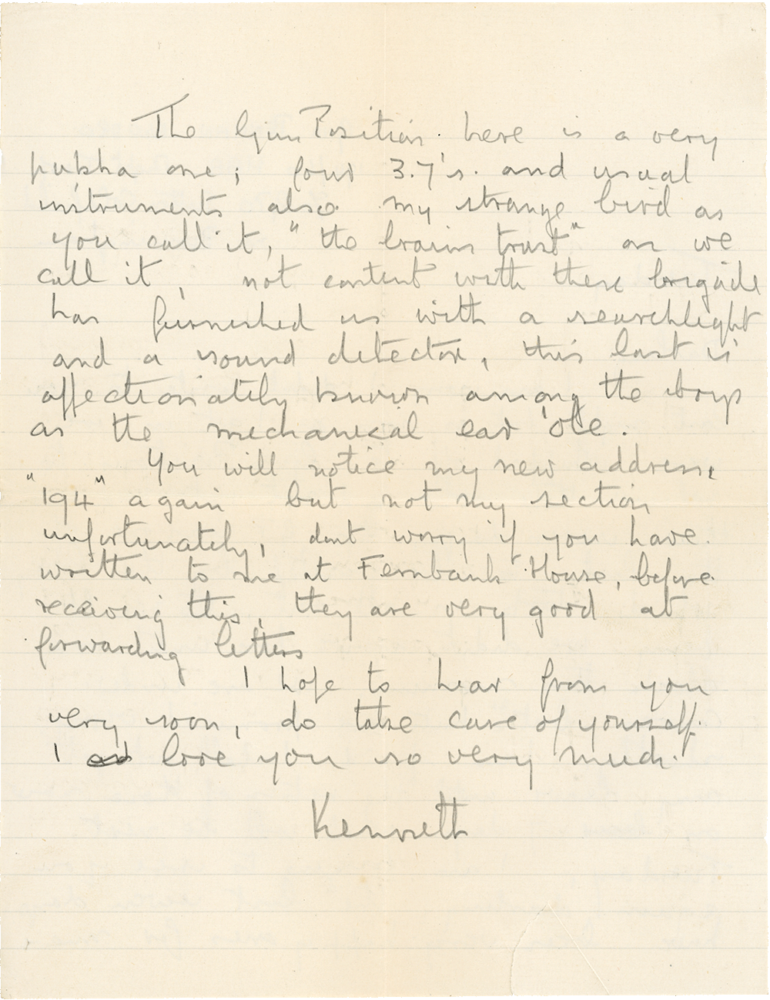 The Gun Position. here is a very
pukha one; four 3.7's. and usual
instruments also my strange bird as
you call it, "the brains trust" as we
call it, not content with these brigade
has furnished us with a searchlight
and a sound detector, this last is
affectionately known among the boys
as the mechanical ear 'ole.
You will notice my new address,
"194" again but not my section
unfortunately, dont worry if you have.
written to me at Fernbank House, before
receiving this, they are very good at
forwarding letters
I hope to hear from you
very soon, do take care of yourself.
I love you so very much.
Kenneth